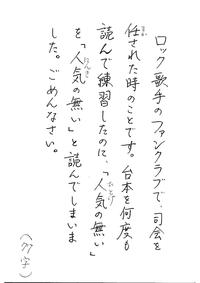 ロック歌手のファンクラブで、司会を
まか
任された時のことです。台本を何度も
読んで練習したのに、「人気の無い」
にんき
を「人気の無い」と読んでしまいま
した。ごめんなさい。